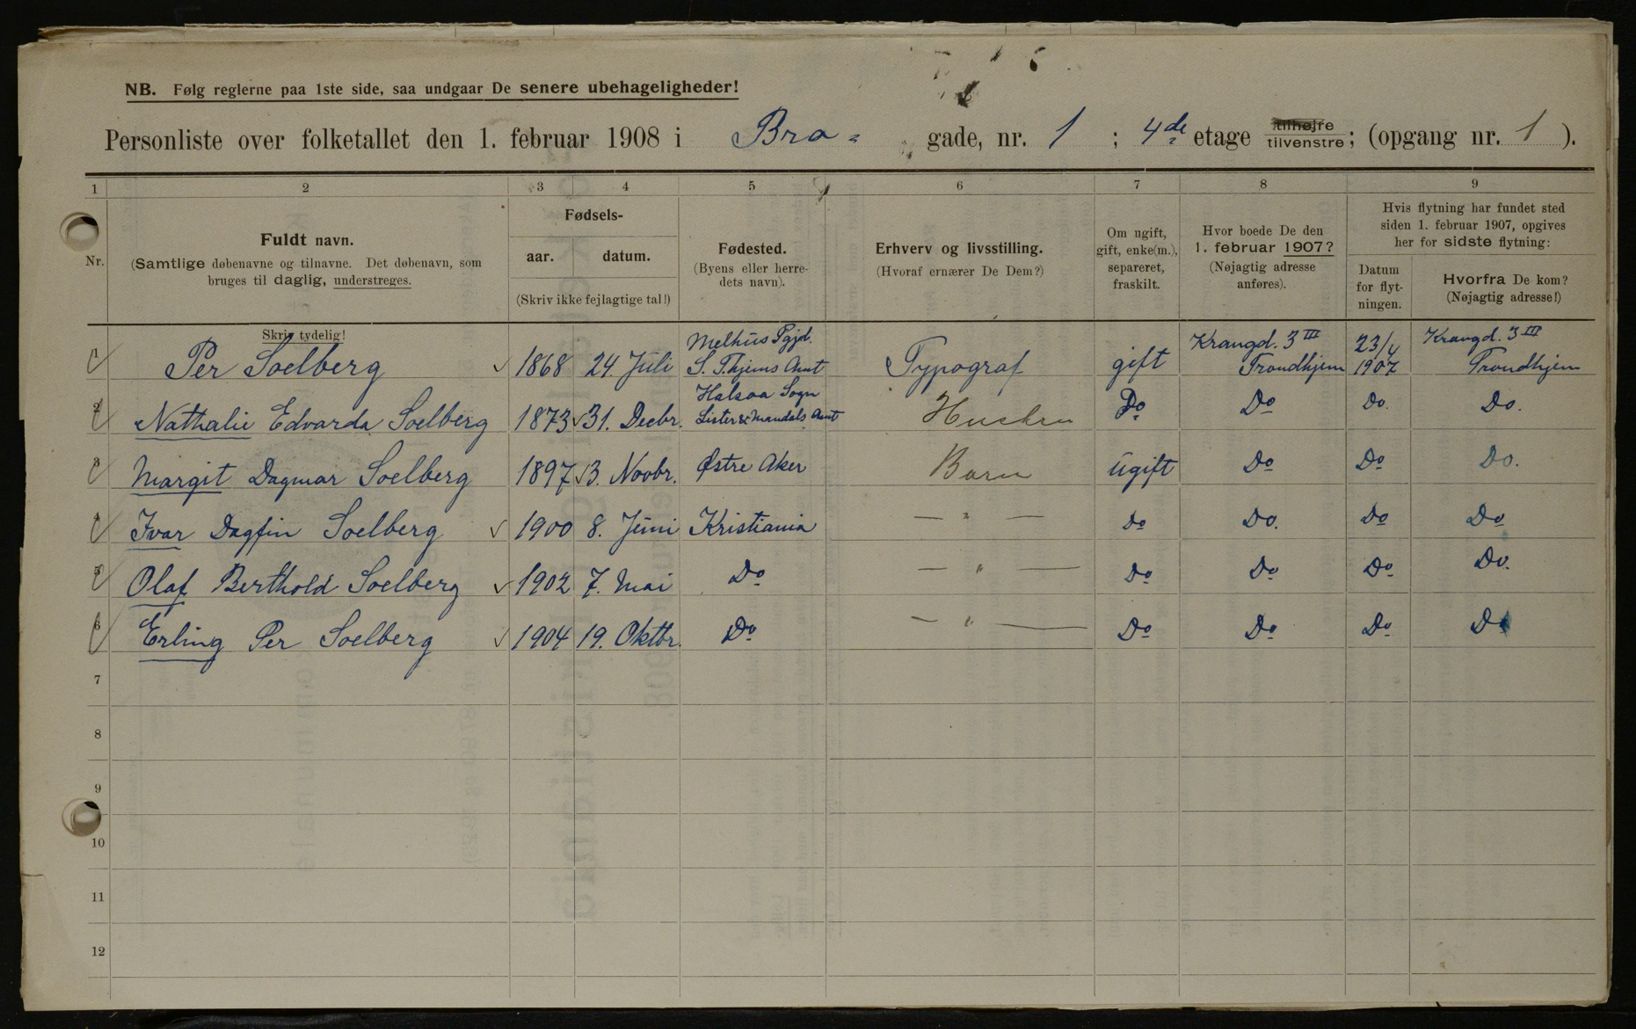 NB. Følg reglerne paa 1ste side, saa undgaar De senere ubehageligheder!
Personliste over folketallet den 1. februar 1908 i Bro- gade, nr. 1 ; 4de etage tilhøjre tilvenstre; (opgang nr. 1 ).
1 2 3 4 5 6 7 8 9
Nr.
Fuldt navn.
(Samtlige døbenavne og tilnavne. Det døbenavn, som
bruges til daglig, understreges.
Skriv tydelig!
Fødsels-
aar. datum.
(Skriv ikke fejlagtige tal!)
Fødested.
(Byens eller herre-
dets navn).
Erhverv og livsstilling.
(Hvoraf ernærer De Dem?)
Om ugift,
gift, enke(m.),
separeret,
fraskilt.
Hvor boede De den
1. februar 1907?
(Nøjagtig adresse
anføres).
Hvis flytning har fundet sted
siden 1. februar 1907, opgives
her for sidste flytning:
Datum
for flyt-
ningen.
Hvorfra De kom?
(Nøjagtig adresse!)
1 Per Soelberg 1868 24. Juli Melhus Pgjd. S. Thjems Amt Typograf gift Krangd. 3 III Trondhjem 23/4 1907 Krangd. 3 III Trondhjem
2 Nathalie Edvarda Soelberg 1873 31. Decbr. Halsaa Sogn Lister & Mandals Amt Hustru Do Do Do. Do.
3 Margit Dagmar Soelberg 1897 3. Novbr. Østre Aker Barn Ugift Do Do Do.
4 Ivar Dagfin Soelberg 1900 8. Juni Kristiania — " — Do Do. Do Do
5 Olaf Berthold Soelberg 1902 7. Mai Do — " — Do Do Do Do.
6 Erling Per Soelberg 1904 19. Oktbr. Do — " — Do Do Do Do
7
8
9
10
11
12